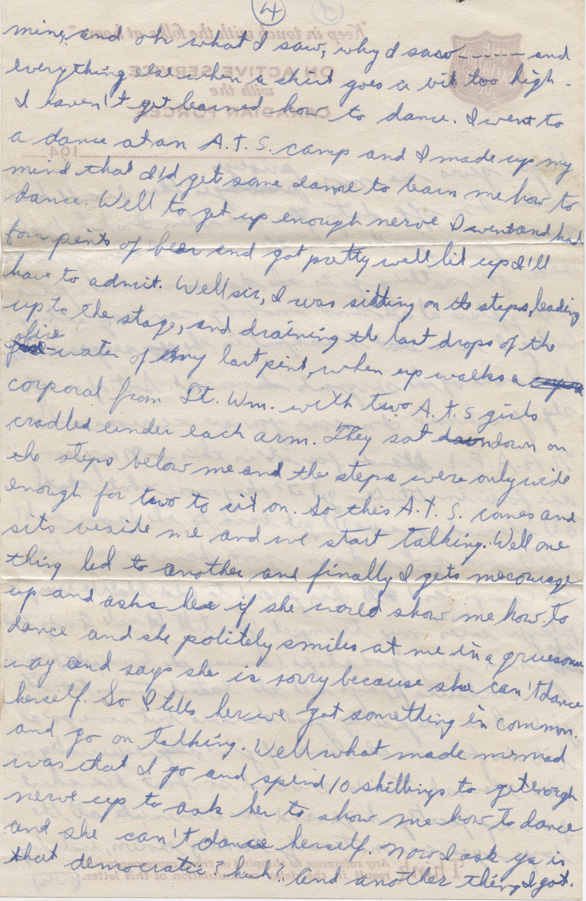 4
mine, and oh what I saw, why I saw ------- and
everything else when a skirt goes a bit too high.
I haven't yet learned how to dance. I went to
a dance at an A.T.S. camp and I made up my
mind that I'd get some dame to learn me how to
dance. Well to get up enough nerve I went and had
four pints of beer and got pretty well lit up I'll
have to admit. Well sir, I was sitting on the steps, leading
up to the stage, and draining the last drops of the
water of my last pint, when up walks a
corporal from Ft. Wm. with two A.T.S girls
cradled under each arm. They sat down on
the steps below me and the steps were only wide
enough for two to sit on. So this A.T.S. comes and
sits beside me and we start talking. Well one
thing led to another and finally I gets me courage
up and asks her if she would show me how to
dance and she politely smiles at me in a gruesome
way and says she is sorry because she can't dance
herself. So I tells her we got something in common.
and go on talking. Well what made me mad
was that I go and spend 10 shillings to get enough
nerve up to ask her to show me how to dance
and she can't dance herself. Now I ask ya is
that democratic? huh.. And another thing I got.